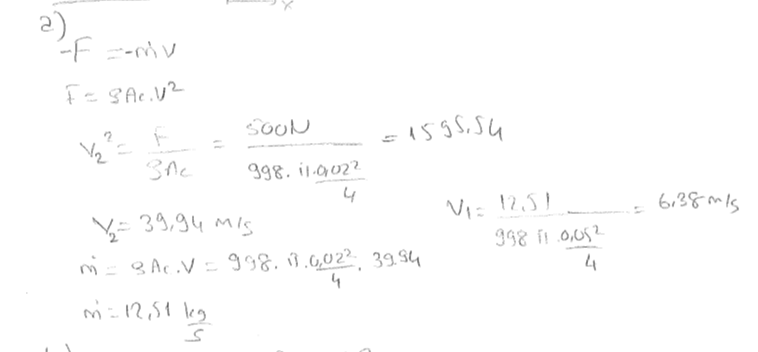 a)
-F = -ṁV
F = ρAc.V²
V₂² = F / ρAc = 500N / 998.π.0,02²/4 = 1595,54
V₂ = 39,94 m/s
ṁ = ρAc.V = 998.π.0,02²/4 . 39.94
ṁ = 12,51 kg/s
V₁ = 12,51 / 998 π .0,05²/4 = 6,38 m/s